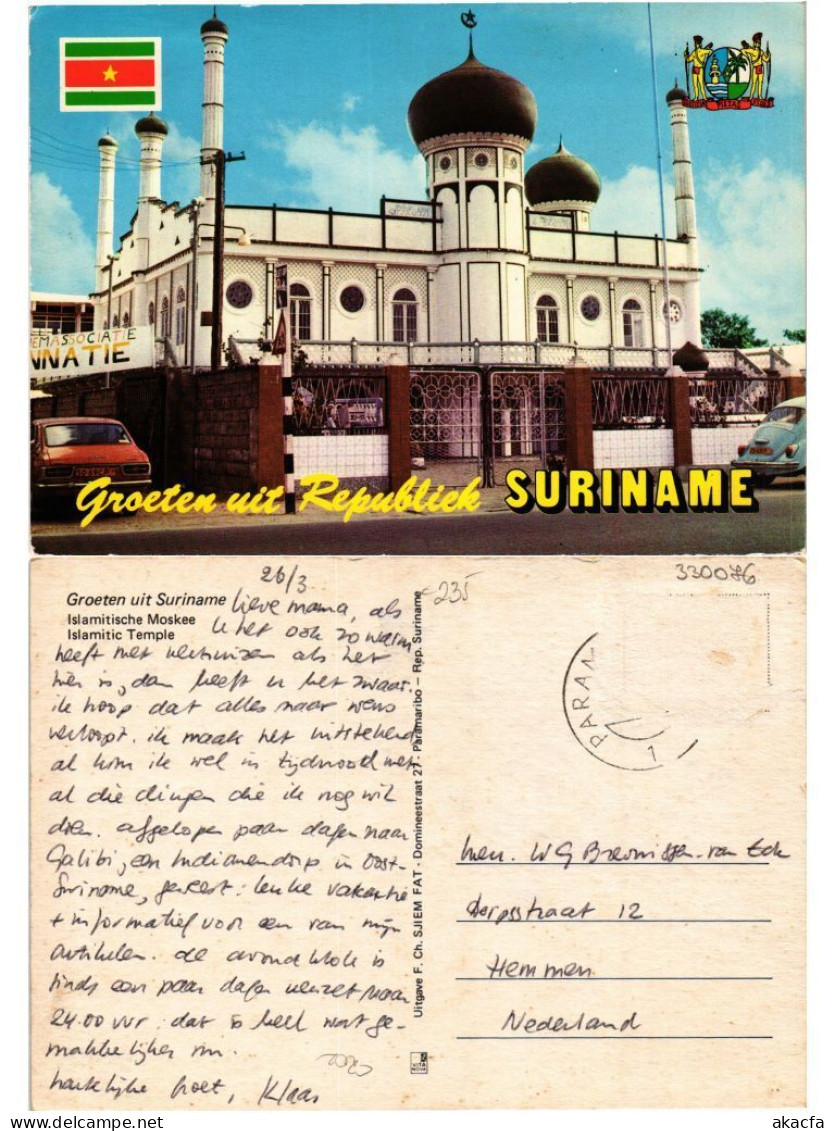 JUSTITIA PIETAS FIDES
EMASSOCIATIE
NNATIE
Groeten uit Republiek SURINAME
26/3
Groeten uit Suriname
Islamitische Moskee
Islamitic Temple
Lieve mama, als
u het ook zo warm
heeft met verhuizen als het
hier is, dan heeft u het zwaar.
ik hoop dat alles naar wens
verloopt. ik maak het uitstekend
al kom ik wel in tijdnood met
al die dingen die ik nog wil
doen. afgelopen paar dagen naar
Galibi, een Indianendorp in Oost-
Suriname, geweest: leuke vakantie
+ informatief voor een van mijn
artikelen. de avondklok is
sinds een paar dagen verzet naar
24.00 uur: dat is heel wat ge-
makkelijker nu.
hartelijke groet, Klaas
Uitgave F. Ch. SJIEM FAT - Domineestraat 27 - Paramaribo - Rep. Suriname
235
330076
PARAM
1
Mevr. W G
Dorpsstraat 12
Hemmen
Nederland
akacfa